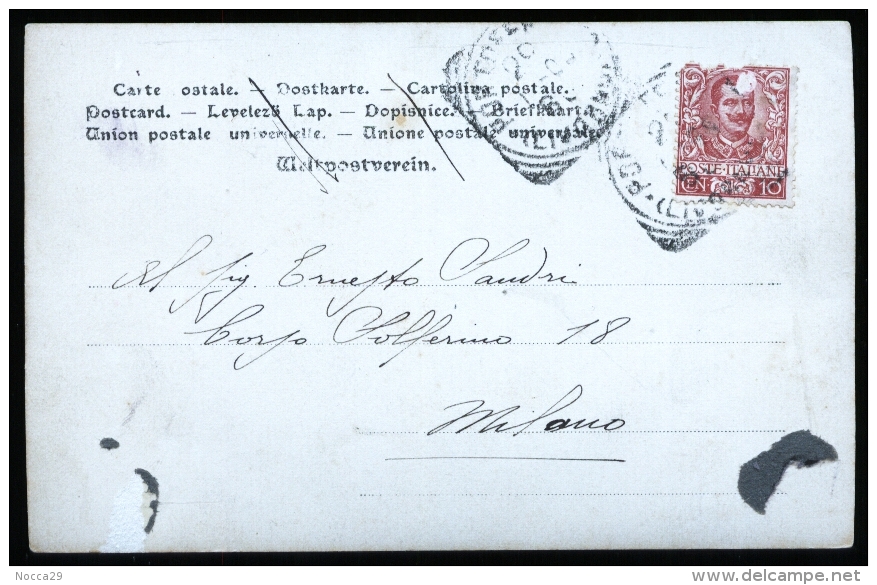 Carte ostale. — Postkarte. — Cartolina postale.
Postcard. — Levelező Lap. — Dopisnice. — Briefkaart
Union postale universelle. — Unione postale universale.
Weltpostverein.
POSTE·ITALIANE
CEN 10
(LIVORNO)
(LIVORNO)
Al Sig. Ernesto Sandri
Corso Solferino 18
Milano
Nocca29
delcampe.net